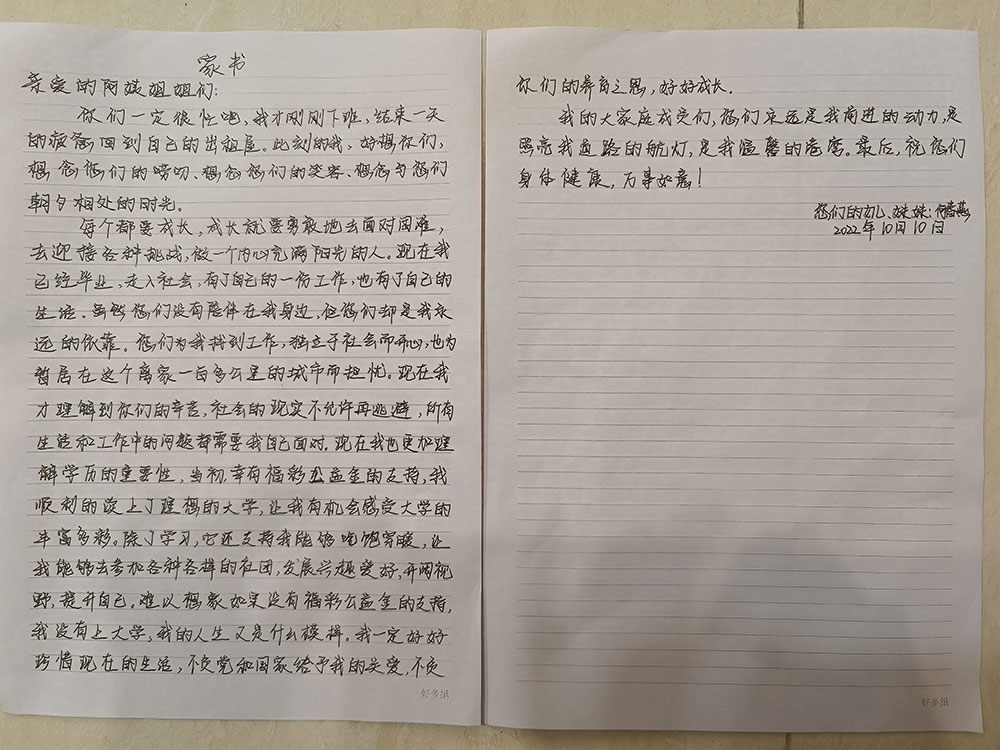 家书
亲爱的阿姨姐姐们:
你们一定很忙吧,我才刚刚下班,结束一天
的疲惫回到自己的出租屋。此刻的我,好想你们,
想念您们的唠叨、想念您们的笑容、想念与您们
朝夕相处的时光。
每个都要成长,成长就要勇敢地去面对困难,
去迎接各种挑战,做一个内心充满阳光的人。现在我
已经毕业,走入社会,有了自己的一份工作,也有了自己的
生活。虽然您们没有陪伴在我身边,但您们却是我永
远的依靠。您们为我找到工作,独立于社会而开心,也为
暂居在这个离家一百多公里的城市而担忧。现在我
才理解到你们的辛苦,社会的现实不允许再逃避,所有
生活和工作中的问题都需要我自己面对。现在我也更加理
解学历的重要性,当初,幸有福彩公益金的支持,我
顺利的读上了理想的大学,让我有机会感受大学的
丰富多彩。除了学习,它还支持我能够吃饱穿暖,让
我能够去参加各种各样的社团,发展兴趣爱好,开阔视
野,提升自己。难以想象如果没有福彩公益金的支持,
我没有上大学,我的人生又是什么模样。我一定好好
珍惜现在的生活,不负党和国家给予我的关爱,不负
好多纸
你们的养育之恩,好好成长。
我的大家庭成员们,您们永远是我前进的动力,是
照亮我道路的航灯,是我温馨的港湾。最后,祝您们
身体健康,万事如意!
您们的女儿、妹妹:
2022年10月10日
好多纸